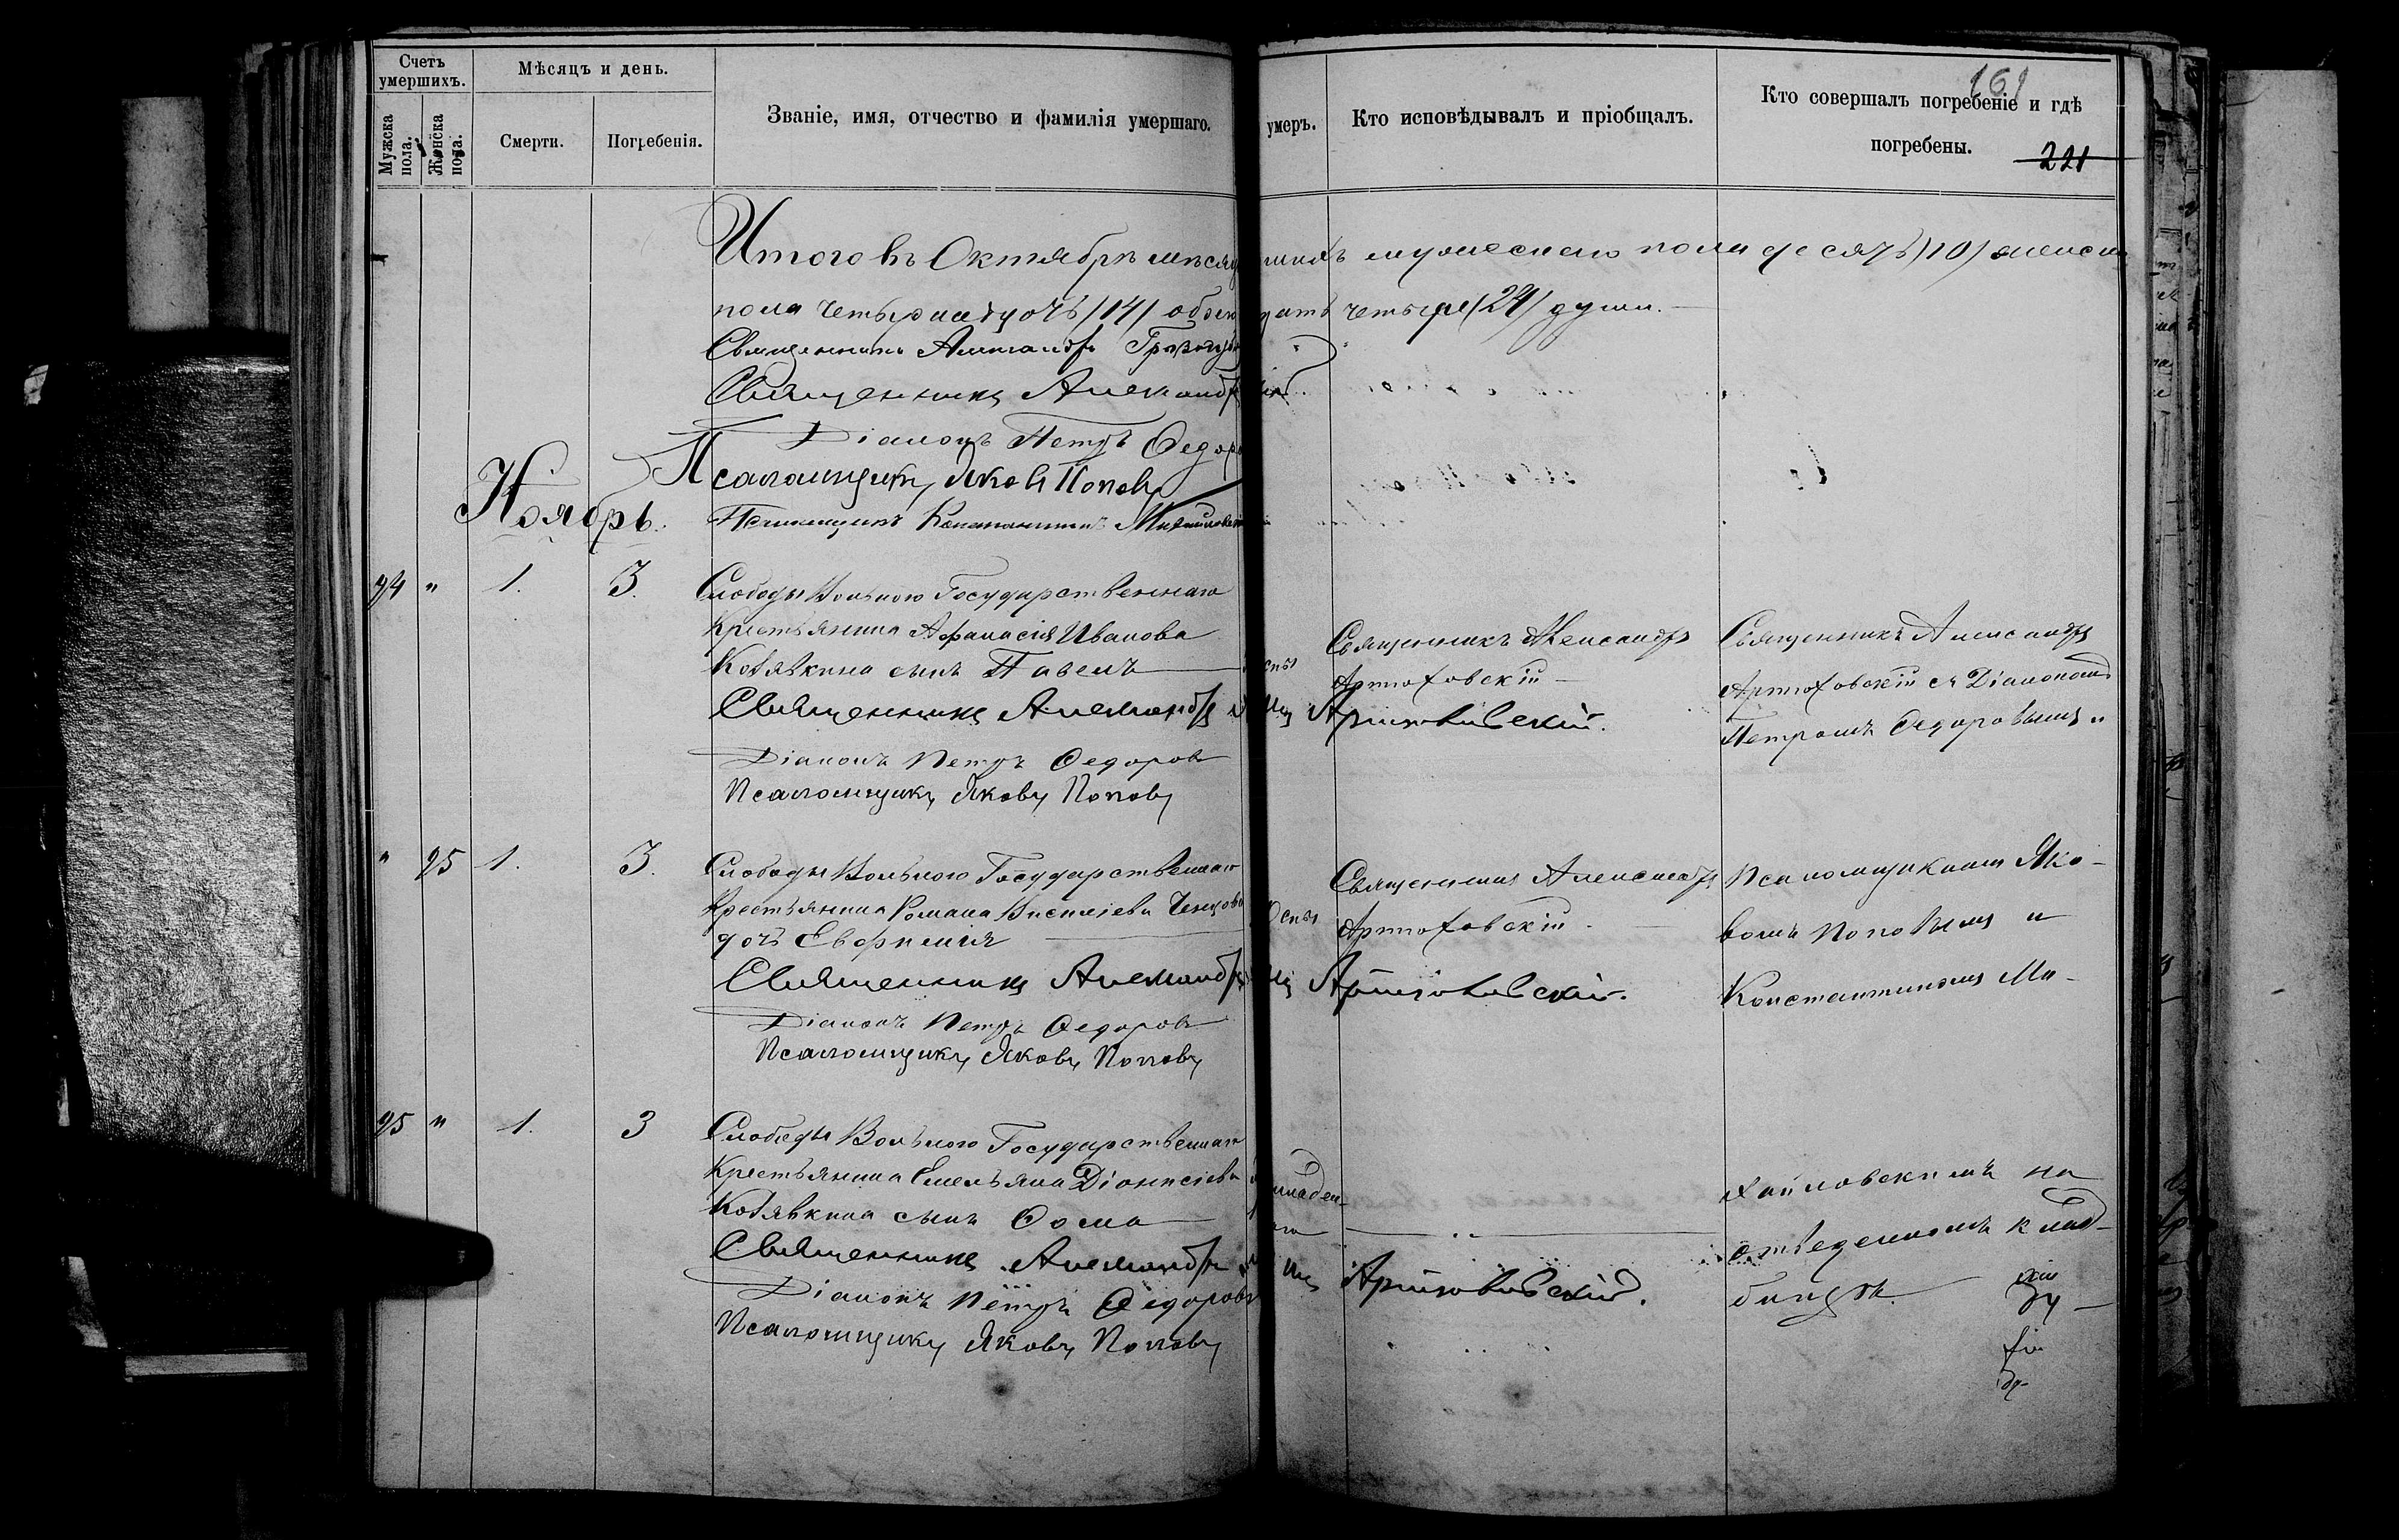 Счетъ
умершихъ.
Мѣсяцъ и день.
Мужска
пола.
Женска
пола.
Смерти.
Погребенія.
Званіе, имя, отчество и фамилія умершаго.
умеръ.
Кто исповѣдывалъ и пріобщалъ.
Кто совершалъ погребеніе и гдѣ
погребены.
161
221
Итого въ Октябрѣ мѣсяц
пола четырнадцать /14/ обоего
Священникъ Александръ
Священникъ Александръ
Діаконъ Петръ Федоро
Псаломщикъ Яковъ Поповъ
Псаломщикъ Константинъ Михайловскій
мужескаго пола десять /10/ женска
дать четыре /24/ души.
Ноябрь.
94 " 1. 3.
Слободы Вольного Государственнаго
Крестьянина Афанасія Иванова
Котявкина сынъ Павелъ
Священникъ Александръ
Діаконъ Петръ Федоровъ
Псаломщикъ Яковъ Поповъ
оспы
Священникъ Александръ
Артюховскій
Артюховскій.
Священникъ Александръ
Артюховскій съ Діакономъ
Петромъ Федоровымъ и
" 95 1. 3.
Слободы Вольного Государственнаго
Крестьянина Романа Василіева
дочь Евфимія
Священникъ Александръ
Діаконъ Петръ Федоровъ
Псаломщикъ Яковъ Поповъ
Оспы
Священникъ Александръ
Артюховскій
Артюховскій.
Псаломщиками Яко-
вомъ Поповымъ и
Константиномъ Ми-
95 " 1. 3
Слободы Вольного Государственнаго
Крестьянина Емельяна Діонисіева
Котявкина сынъ Фома
Священникъ Александръ
Діаконъ Петръ Федоровъ
Псаломщикъ Яковъ Поповъ
младен-
Артюховскій.
хайловскимъ на
отведенномъ клад-
бищѣ.